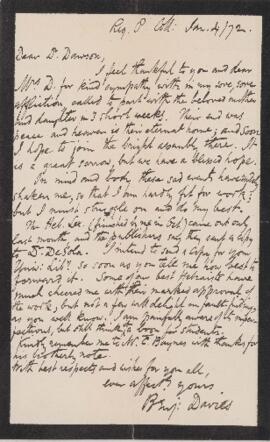 Reg. P. Coll: Jan. 4/72.
Dear Dr. Dawson,
I feel thankful to you and dear
Mrs D. for kind sympathy with in my sore, sore
affliction, called to part with the beloved mother
and daughter in 3 short weeks. Their end was
peace and heaven is their eternal home; and soon
I hope to join the bright assembly there. It
is a great sorrow, but we have a blessed hope.
In mind and body, these sad events have
shaken me, so that I am hardly fit for work;
but I must struggle on and do my best.
The Heb. Lex. (finished by me in Oct.) came out only
last month, and the publishers say they sent a copy
to Dr. DeSola. I intend to send a copy for your
Univ. Liby. so soon as you tell me how best to
forward it. Some of our best Hebraists have
much cheered me with their marked approval of
the work, but not a few will delight in fault-finding
as you well know. I am painfully aware of its imper-
fections, but still think it a boon for students.
Kindly remember me to Mr. Baynes with thanks for
his brotherly note.
With best respects and wishes for you all,
ever affectly. yours
Benj. Davies